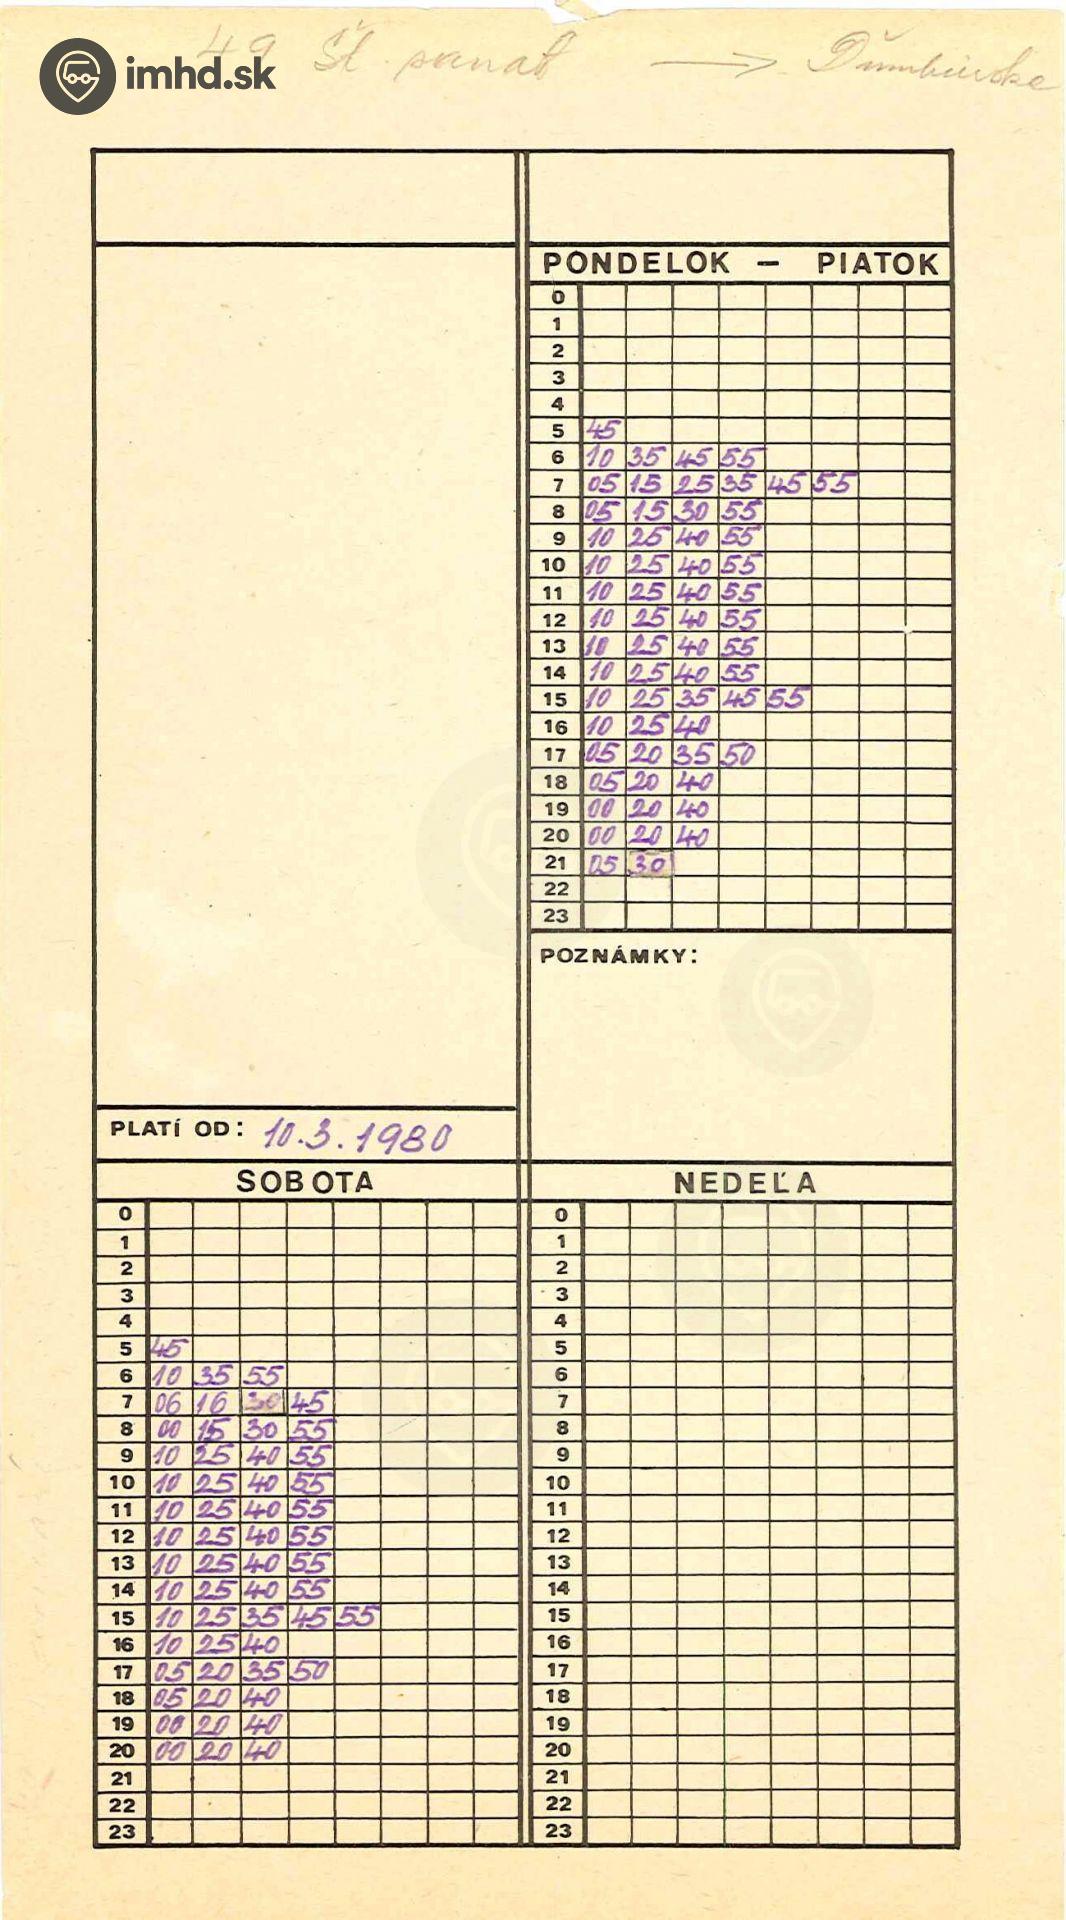 imhd.sk
49 Št. sanat →
PONDELOK – PIATOK
0
1
2
3
4
5 45
6 10 35 45 55
7 05 15 25 35 45 55
8 05 15 30 55
9 10 25 40 55
10 10 25 40 55
11 10 25 40 55
12 10 25 40 55
13 10 25 40 55
14 10 25 40 55
15 10 25 35 45 55
16 10 25 40
17 05 20 35 50
18 05 20 40
19 00 20 40
20 00 20 40
21 05 30
22
23
POZNÁMKY:
PLATÍ OD: 10.3.1980
SOBOTA
0
1
2
3
4
5 45
6 10 35 55
7 06 16 30 45
8 00 15 30 55
9 10 25 40 55
10 10 25 40 55
11 10 25 40 55
12 10 25 40 55
13 10 25 40 55
14 10 25 40 55
15 10 25 35 45 55
16 10 25 40
17 05 20 35 50
18 05 20 40
19 00 20 40
20 00 20 40
21
22
23
NEDEĽA
0
1
2
3
4
5
6
7
8
9
10
11
12
13
14
15
16
17
18
19
20
21
22
23